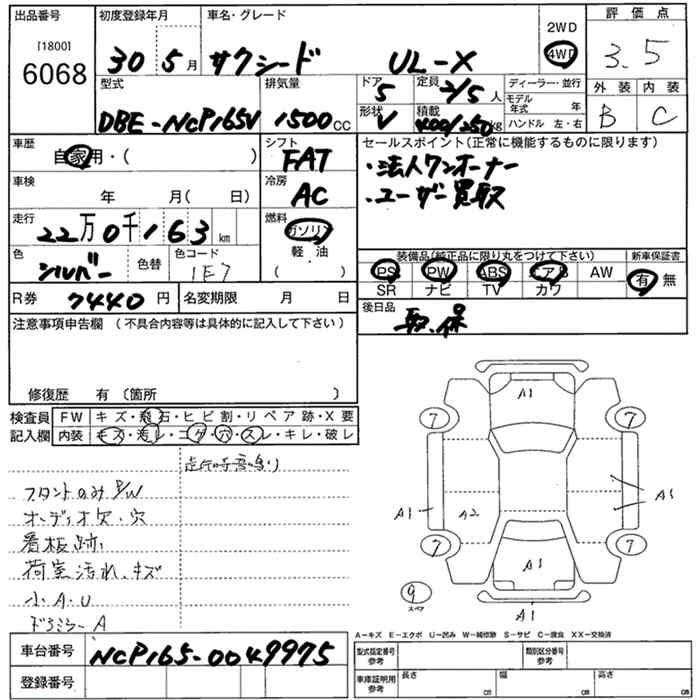 出品番号
[1800]
6068
初度登録年月
30 5月
車名・グレード
サクシード UL-X
2WD
4WD
評価点
3.5
型式
DBE-NCP165V
排気量
1500 CC
ドア
5
形状
V
定員
2/5 人
積載
400/250 kg
ディーラー・並行
モデル年式 年
ハンドル 左・右
外装
B
内装
C
車歴
自家用・( )
シフト
FAT
セールスポイント(正常に機能するものに限ります)
・法人ワンオーナー
・ユーザー買取
車検
年 月( 日)
冷房
AC
走行
22万0千163 km
燃料
ガソリン
軽・油
( )
色
シルバー
色替
色コード
1E7
装備品(純正品に限り丸をつけて下さい)
PS PW ABS エアB AW
SR ナビ TV カワ
新車保証書
有・無
R券 7440円
名変期限 月 日
後日品
取.保
注意事項申告欄 (不具合内容等は具体的に記入して下さい)
修復歴 有 〔箇所 〕
検査員記入欄
FW キズ・飛石・ヒビ割・リペア跡・X要
内装 キズ・汚レ・コゲ・穴・スレ・キレ・破レ
走行時音鳴り
フロントのみP/W
オーディオ欠・穴
看板跡
荷室汚れ.キズ
小A.U
ドアミラーA
A1
7
7
A1
A2
A1
7
7
A1
9
スペア
A1
A-キズ E-エクボ U-凹み W-補修跡 S-サビ C-腐食 XX-交換済
車台番号
NCP165-0049975
登録番号
型式指定番号
参考
類別区分番号
参考
車庫証明用
参考
長さ cm
幅 cm
高さ cm